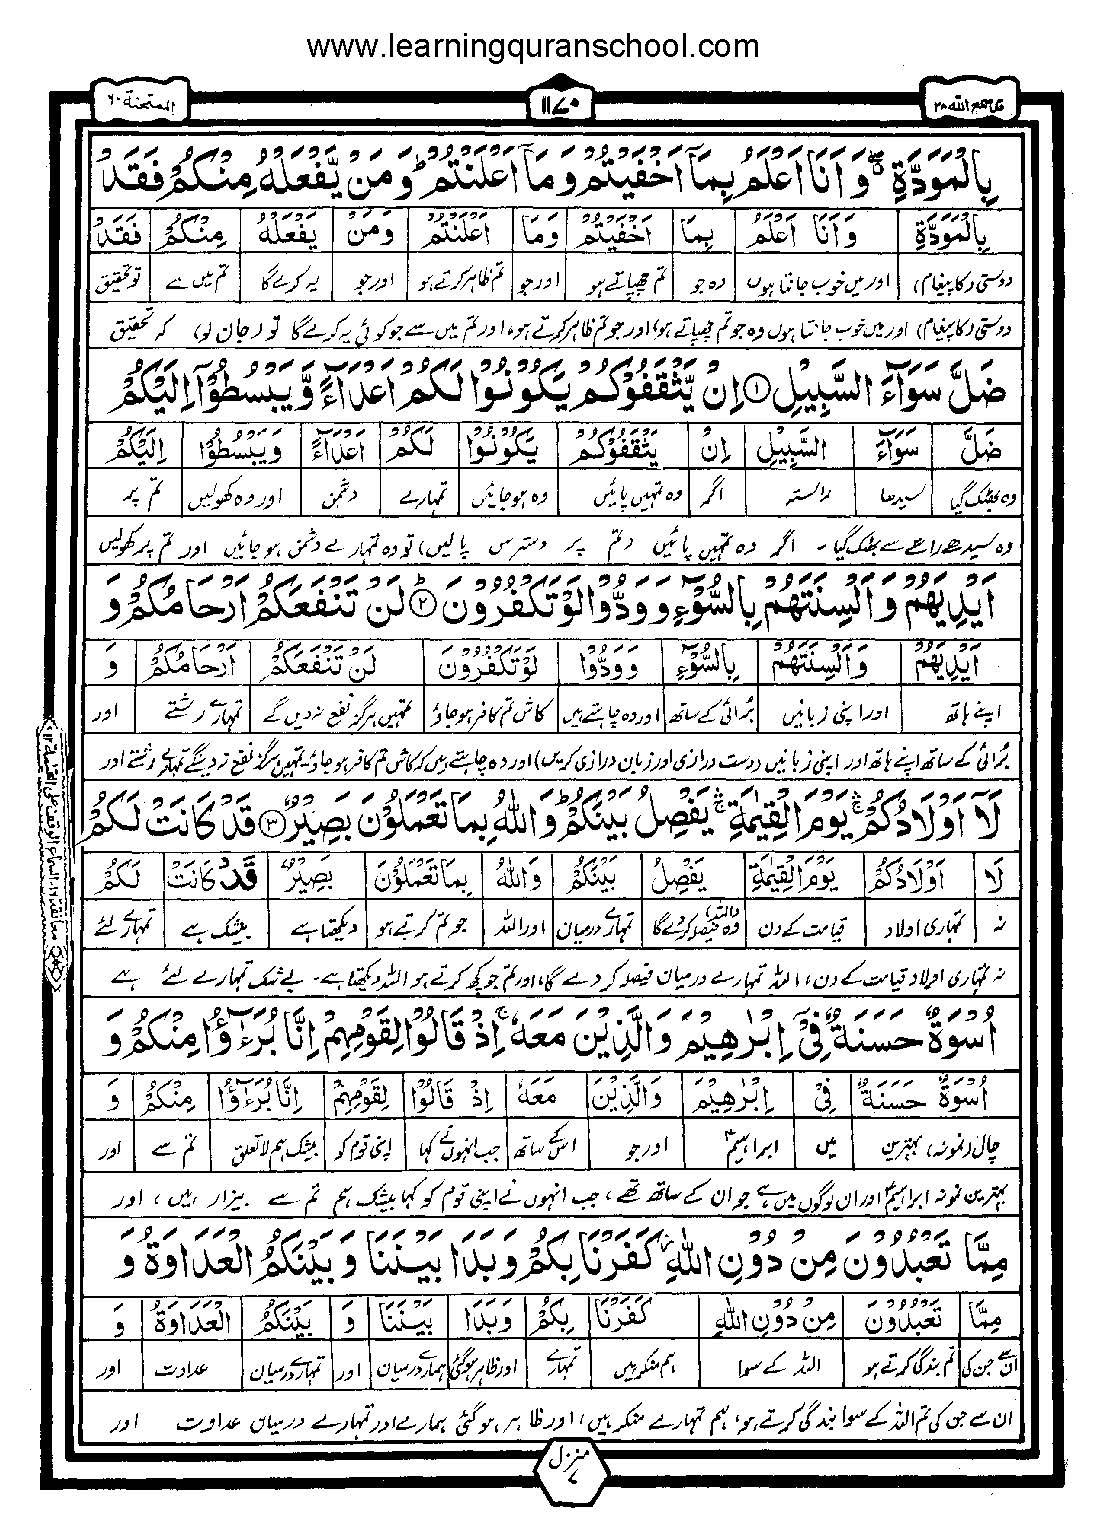 www.learningquranschool.com
قد سمع الله ۲۸
۱۱۷۰
الممتحنة ۶۰
بِالْمَوَدَّةِ ۖ وَاَنَا اَعْلَمُ بِمَآ اَخْفَيْتُمْ وَمَآ اَعْلَنْتُمْ ؕ وَمَنْ يَّفْعَلْهُ مِنْكُمْ فَقَدْ
بِالْمَوَدَّةِ وَاَنَا اَعْلَمُ بِمَا اَخْفَيْتُمْ وَمَا اَعْلَنْتُمْ وَمَنْ يَفْعَلْهُ مِنْكُمْ فَقَدْ
دوستی (کا پیغام) اور میں خوب جانتا ہوں وہ جو تم چھپاتے ہو اور جو تم ظاہر کرتے ہو اور جو یہ کرے گا تم میں سے تو تحقیق
دوستی (کا پیغام) اور میں خوب جانتا ہوں وہ جو تم چھپاتے ہو، اور جو تم ظاہر کرتے ہو، اور تم میں سے جو کوئی یہ کرے گا تو (جان لو) کہ تحقیق
ضَلَّ سَوَآءَ السَّبِيْلِ ۝۱ اِنْ يَّثْقَفُوْكُمْ يَكُوْنُوْا لَكُمْ اَعْدَآءً وَّيَبْسُطُوْٓا اِلَيْكُمْ
ضَلَّ سَوَآءَ السَّبِيْلِ اِنْ يَثْقَفُوْكُمْ يَكُوْنُوْا لَكُمْ اَعْدَآءً وَيَبْسُطُوْا اِلَيْكُمْ
وہ بھٹک گیا سیدھا راستہ اگر وہ تمہیں پائیں وہ ہو جائیں تمہارے دشمن اور وہ کھولیں تم پر
وہ سیدھے راستے سے بھٹک گیا۔ اگر وہ تمہیں پائیں (تم پر دسترس پالیں) تو وہ تمہارے دشمن ہو جائیں اور تم پر کھولیں
اَيْدِيَهُمْ وَاَلْسِنَتَهُمْ بِالسُّوْٓءِ وَوَدُّوْا لَوْ تَكْفُرُوْنَ ؕ ۝۲ لَنْ تَنْفَعَكُمْ اَرْحَامُكُمْ وَ
اَيْدِيَهُمْ وَاَلْسِنَتَهُمْ بِالسُّوْٓءِ وَوَدُّوْا لَوْ تَكْفُرُوْنَ لَنْ تَنْفَعَكُمْ اَرْحَامُكُمْ وَ
اپنے ہاتھ اور اپنی زبانیں بُرائی کے ساتھ اور وہ چاہتے ہیں کاش تم کافر ہو جاؤ تمہیں ہرگز نفع نہ دیں گے تمہارے رشتے اور
بُرائی کے ساتھ اپنے ہاتھ اور اپنی زبانیں (دست درازی اور زبان درازی کریں) اور وہ چاہتے ہیں کہ کاش تم کافر ہو جاؤ، تمہیں ہرگز نفع نہ دینگے تمہارے رشتے اور
لَآ اَوْلَادُكُمْ ۛۚ يَوْمَ الْقِيٰمَةِ ۛۚ يَفْصِلُ بَيْنَكُمْ ؕ وَاللّٰهُ بِمَا تَعْمَلُوْنَ بَصِيْرٌ ۝۳ قَدْ كَانَتْ لَكُمْ
لَا اَوْلَادُكُمْ يَوْمَ الْقِيٰمَةِ يَفْصِلُ بَيْنَكُمْ وَاللّٰهُ بِمَا تَعْمَلُوْنَ بَصِيْرٌ قَدْ كَانَتْ لَكُمْ
نہ تمہاری اولاد قیامت کے دن وہ (اللہ) فیصلہ کر دے گا تمہارے درمیان اور اللہ جو تم کرتے ہو دیکھتا ہے بیشک ہے تمہارے لئے
نہ تمہاری اولاد قیامت کے دن، اللہ تمہارے درمیان فیصلہ کر دے گا، اور تم جو کچھ کرتے ہو اللہ دیکھتا ہے۔ بے شک تمہارے لئے ہے
اُسْوَةٌ حَسَنَةٌ فِيْٓ اِبْرٰهِيْمَ وَالَّذِيْنَ مَعَهٗ ۚ اِذْ قَالُوْا لِقَوْمِهِمْ اِنَّا بُرَءٰٓؤُا مِنْكُمْ وَ
اُسْوَةٌ حَسَنَةٌ فِيْ اِبْرٰهِيْمَ وَالَّذِيْنَ مَعَهٗ اِذْ قَالُوْا لِقَوْمِهِمْ اِنَّا بُرَءٰٓؤُا مِنْكُمْ وَ
چال (نمونہ) بہترین میں ابراہیمؑ اور جو اس کے ساتھ جب انہوں نے کہا اپنی قوم کو بیشک ہم لا تعلق تم سے اور
بہترین نمونہ ابراہیمؑ اور ان لوگوں میں ہے جو ان کے ساتھ تھے، جب انہوں نے اپنی قوم کو کہا بیشک ہم تم سے بیزار ہیں، اور
مِمَّا تَعْبُدُوْنَ مِنْ دُوْنِ اللّٰهِ كَفَرْنَا بِكُمْ وَبَدَا بَيْنَنَا وَبَيْنَكُمُ الْعَدَاوَةُ وَ
مِمَّا تَعْبُدُوْنَ مِنْ دُوْنِ اللّٰهِ كَفَرْنَا بِكُمْ وَبَدَا بَيْنَنَا وَ بَيْنَكُمُ الْعَدَاوَةُ وَ
ان سے جن کی تم بندگی کرتے ہو اللہ کے سوا ہم منکر ہیں تمہارے اور ظاہر ہو گئی ہمارے درمیان اور تمہارے درمیان عداوت اور
ان سے جن کی تم اللہ کے سوا بندگی کرتے ہو، ہم تمہارے منکر ہیں، اور ظاہر ہو گئی ہمارے اور تمہارے درمیان عداوت اور
منزل ۷